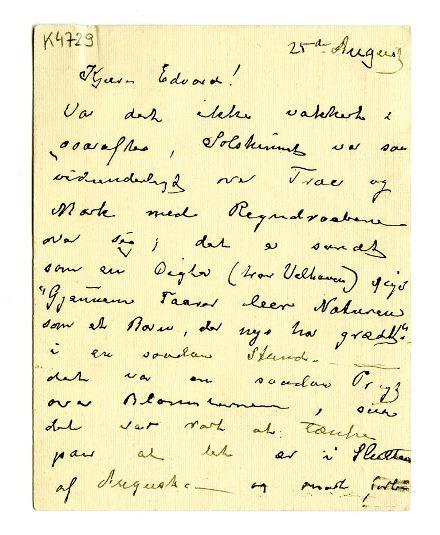 K4729
25de August
Kjære Edvard!
Var det ikke vakkert i
aaraftes, Solskinnet var saa
vidunderligt over Trær og
Mark med Regndraabene
over sig; det er sandt
som en Digter (tror Velhaven) siger
"Gjennem Taarer leer Naturen
som et Barn, der nys har grædt".
i en saadan Stund.
det var en saadan
over Blomsterne,
det var rart at tænke
paa at det er i Slutten
af August. — og